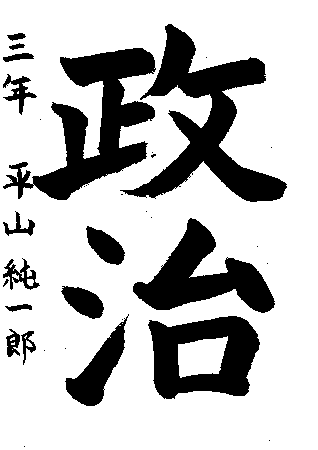 政治
三年 平山純一郎